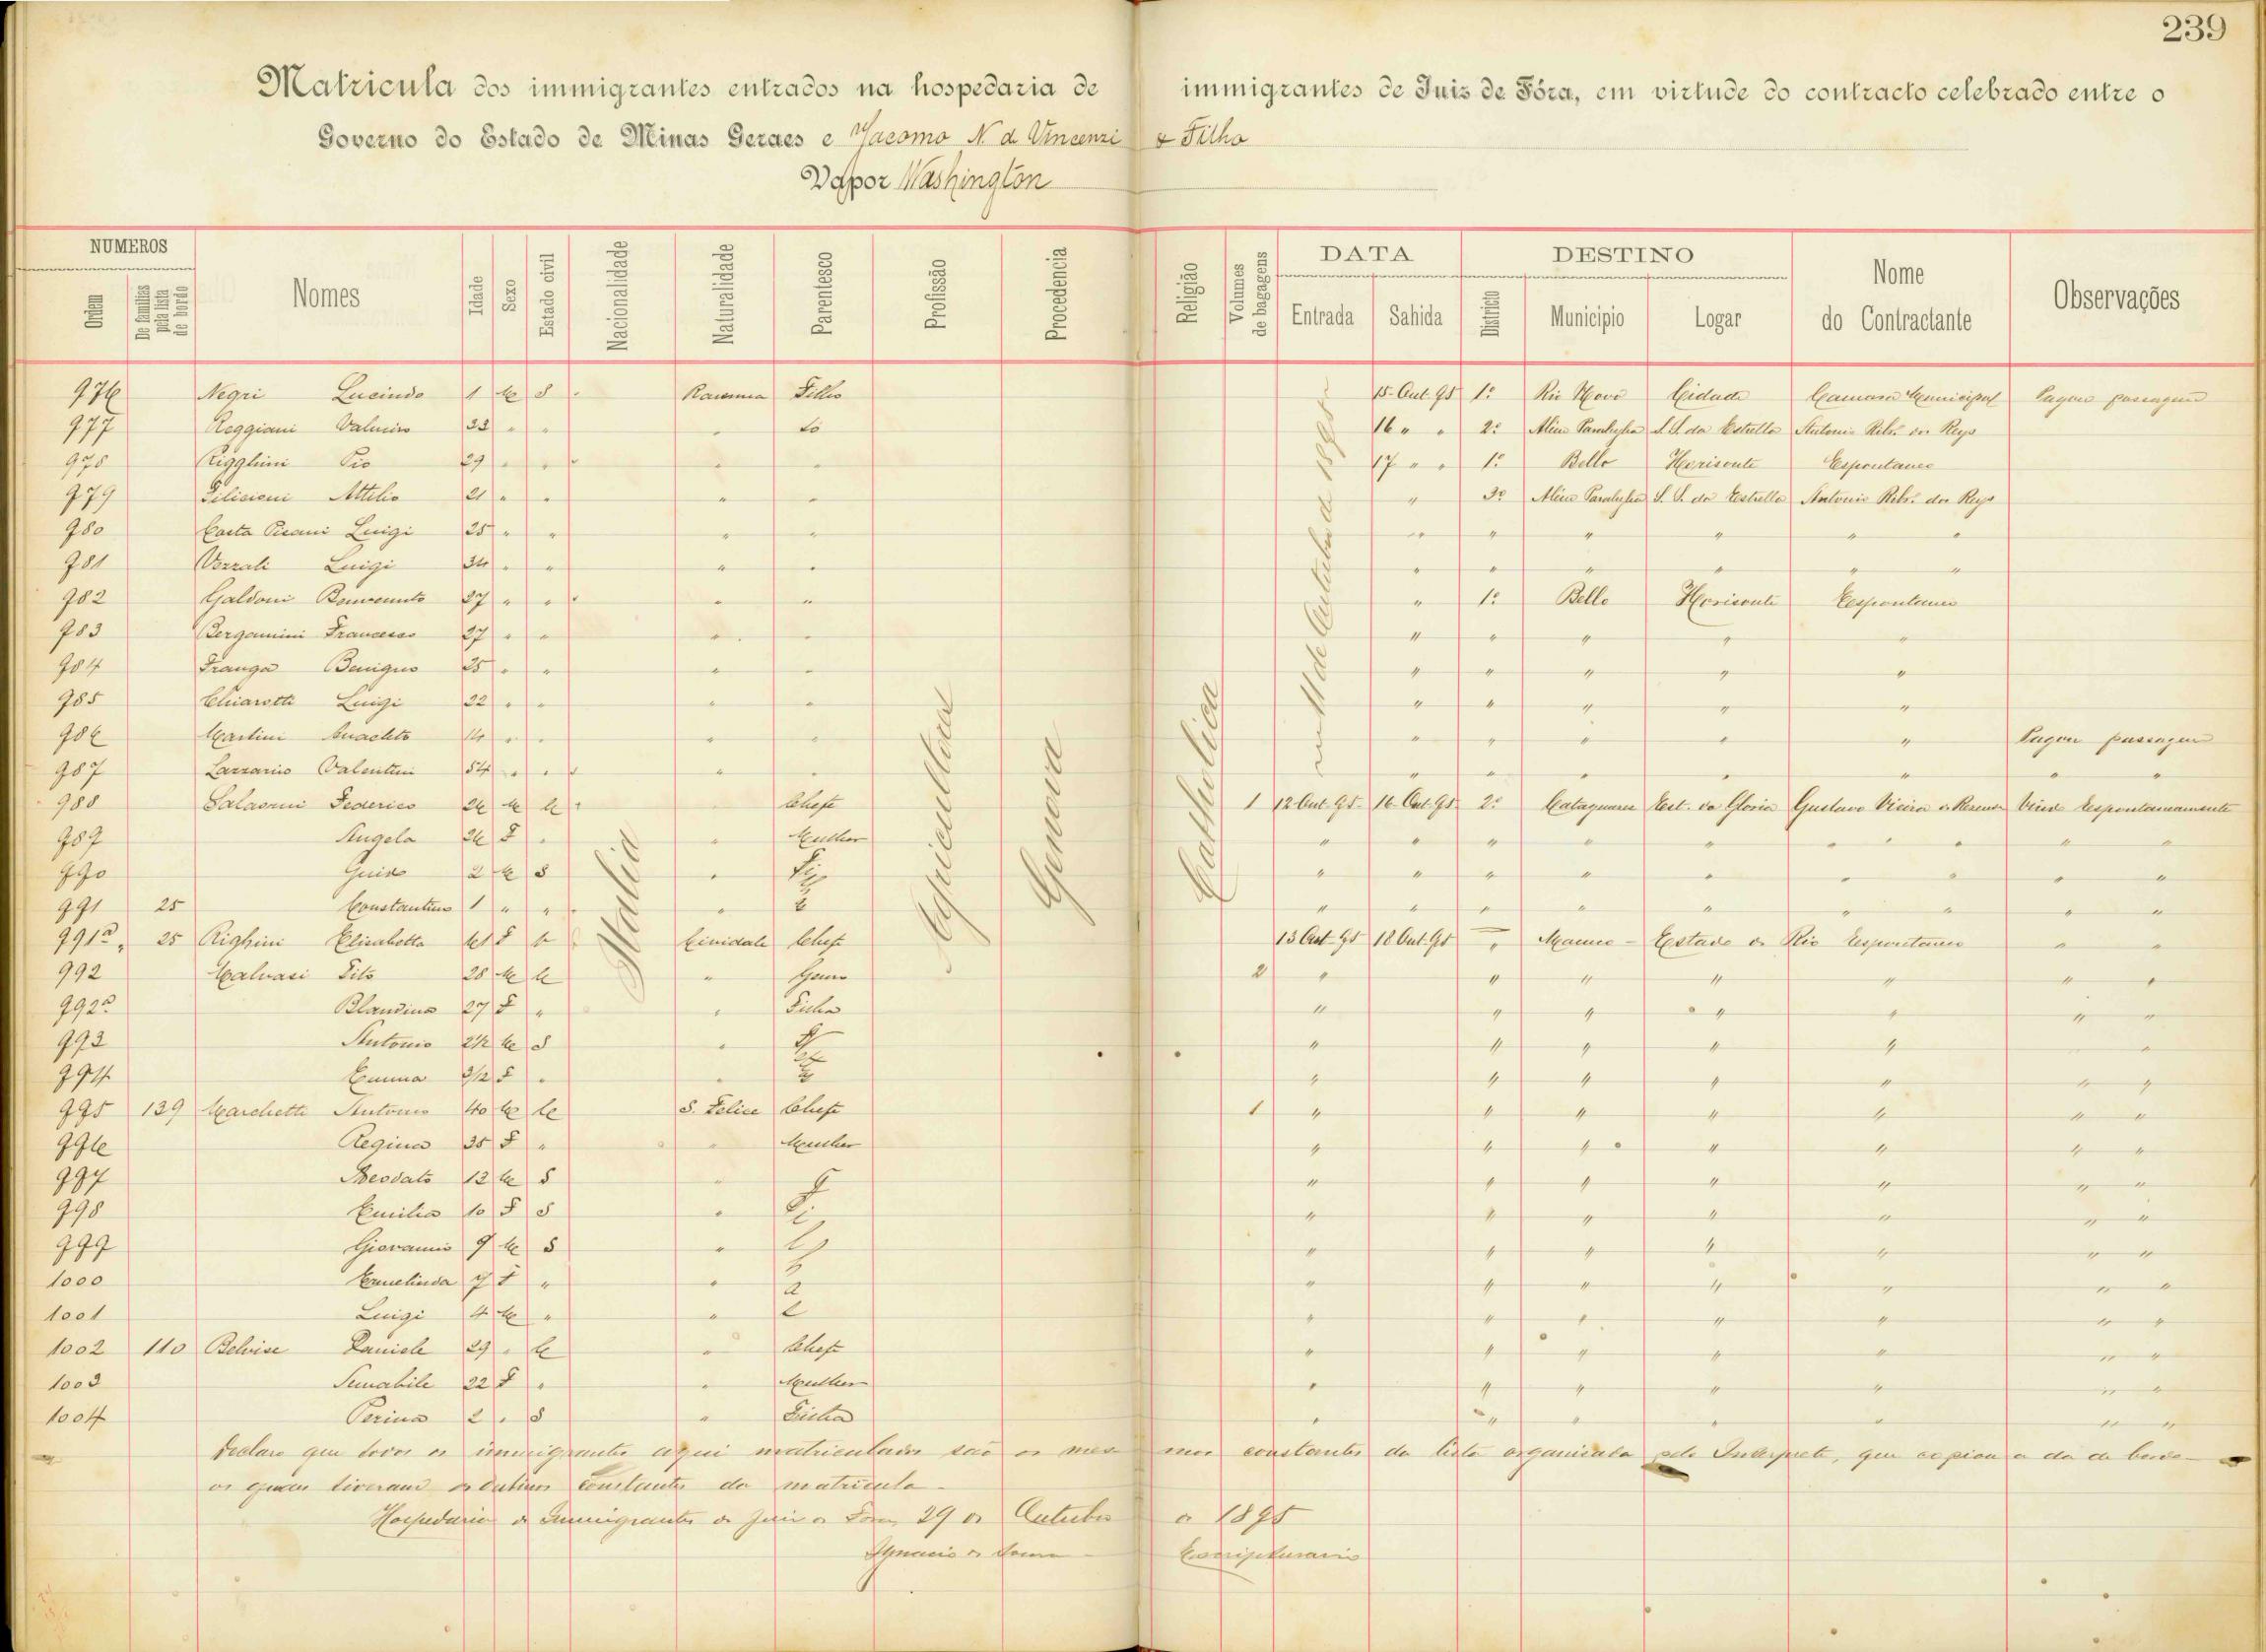 239
Matricula dos immigrantes entrados na hospedaria de immigrantes de Juiz de Fóra, em virtude do contracto celebrado entre o
Governo do Estado de Minas Geraes e Jacomo N. de Vincenzi & Filho
Vapor Washington
NUMEROS DATA DESTINO
Ordem De familias pela lista de bordo Nomes Idade Sexo Estado civil Nacionalidade Naturalidade Parentesco Profissão Procedencia Religião Volumes de bagagens Entrada Sahida Districto Municipio Logar Nome do Contractante Observações
Italia Agricultora Genova Catholica em 11 de Outubro de 1895
976 Negri Lucindo 1 M S Ravenna Filho 15-Out-95 1º Rio Novo Cidade Camara Municipal Pagou passagem
977 Reggiani 33 " " " Só 16 " " 2º Além Parahyba S. S. da Estrella Antonio Ribº dos Reys
978 Righini Pio 29 " " " " 17 " " 1º Bello Horisonte Espontaneo
979 Attilio 21 " " " " " 3º Além Parahyba S. S. da Estrella Antonio Ribº dos Reys
980 Costa Pisani Luigi 25 " " " " " " " " " "
981 Vezzali Luigi 34 " " " " " " " " " "
982 Galdoni Benvenuto 27 " " " " " 1º Bello Horisonte Espontaneo
983 Bergamini Francesco 27 " " " " " " " " "
984 Franga Benigno 25 " " " " " " " " "
985 Chiarotti Luigi 22 " " " " " " " " "
986 Martini Anacleto 14 " " " " " " " " " Pagou passagem
987 Lazzarino Valentini 54 " " " " " " " " " " "
988 Salaroni Federico 26 M C " Chefe 1 12-Out-95 16-Out-95 2º Cataguazes Est. da Gloria Gustavo Vieira de Rezende Vindo Espontaneamente
989 Angela 26 F " " Mulher " " " " " " " " " "
990 Guido 2 M S " " " " " " " " " "
991 25 Constantino 1 " " " " " " " " " " " "
991ª 25 Righini Elisabetta 61 F V Cividale Chefe 13 Out-95 18 Out-95 " Mauricio - Estado do Rio Espontaneo " "
992 Malvasi Tito 28 M C " Genro 2 " " " " " " "
992ª Blandina 27 F " " Filha " " " " " " "
993 Antonio 2½ M S " " " " " " "
994 Emma 3/12 F " " " " " " " " "
995 139 Marchetti Antonio 40 M C S. Felice Chefe 1 " " " " " " "
996 Regina 35 F " " Mulher " " " " " " "
997 Deodato 12 M S " " " " " " " "
998 Emilia 10 F S " " " " " " " "
999 Giovanni 9 M S " " " " " " " "
1000 Ermelinda 7 F " " " " " " " " "
1001 Luigi 4 M " " " " " " " " "
1002 110 Belvise Daniele 29 " C " Chefe " " " " " " "
1003 Amabile 22 F " " Mulher " " " " " " "
1004 Perina 2 " S " Filha " " " " " " "
Declaro que todos os immigrantes aqui matriculados são os mesmos constantes da lista organisada pelo Interprete, que copiou a da de bordo
os quaes tiveram os destinos constantes da matricula.
Hospedaria de Immigrantes de Juiz de Fora, 29 de Outubro de 1895
Ignacio de Escripturario